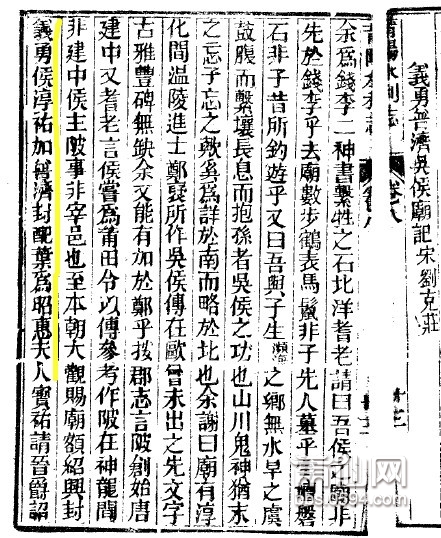 義勇普濟吳侯廟記 宋 劉克莊
莆陽水利志 卷八
余爲錢李二神書繫牲之石北洋耆老請曰吾侯廟非
先於錢李乎去廟數步鶴表馬鬣非子先人墓乎磐
石非子昔所釣遊乎又曰吾與子生瀕海之鄉無水旱之虞
鼓腹而繫壤長息而抱孫者吳侯之功也山川鬼神猶未
之忘子忘之歟奚爲詳於南而略於北也余謝曰廟有淳
化間温陵進士鄭褒所作吳侯傳在歐曾未出之先文字
古雅豐碑無缺余文能有加於鄭乎按郡志言陂創始唐
建中又耆老言侯嘗爲莆田令以傳參考作陂在神龍間
非建中侯主陂事非宰邑也至本朝大觀賜廟額紹興封
義勇侯淳祐加普濟封配葉爲昭惠夫人寶祐請晉爵詔